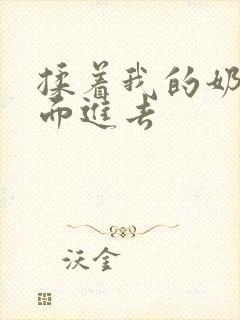 揉着我的奶
而進去
沃金